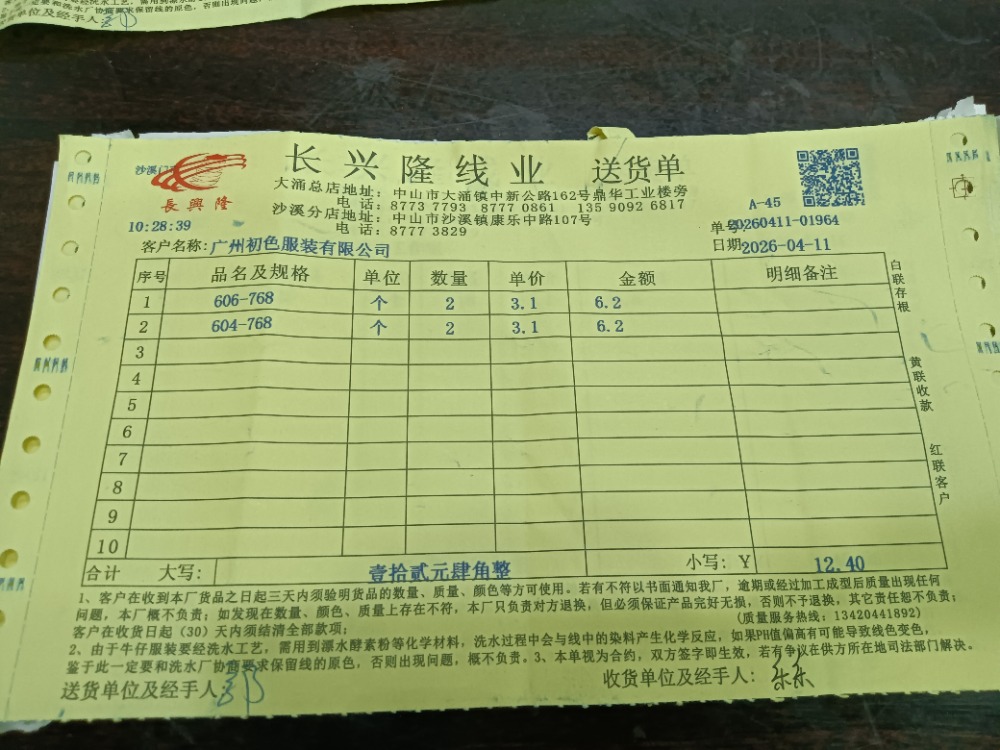 一定要和洗水厂协商要求保留线的原色，否则出现问
单位及经手人
长兴隆线业 送货单
沙溪
長興隆
大涌总店地址：中山市大涌镇中新公路162号鼎华工业楼旁
电话：8773 7793 8777 0861 135 9092 6817
沙溪分店地址：中山市沙溪镇康乐中路107号
电话：8777 3829
A-45
10:28:39
单号:20260411-01964
客户名称:广州初色服装有限公司
日期2026-04-11
序号 品名及规格 单位 数量 单价 金额 明细备注
1 606-768 个 2 3.1 6.2
2 604-768 个 2 3.1 6.2
3
4
5
6
7
8
9
10
合计 大写: 壹拾贰元肆角整 小写: Y 12.40
白联存根
黄联收款
红联客户
1、客户在收到本厂货品之日起三天内须验明货品的数量、质量、颜色等方可使用。若有不符以书面通知我厂，逾期或经过加工成型后质量出现任何
问题，本厂概不负责；如发现在数量、颜色、质量上存在不符，本厂只负责对方退换，但必须保证产品完好无损，否则不予退换，其它责任恕不负责；
客户在收货日起（30）天内须结清全部款项；
(质量服务热线：13420441892)
2、由于牛仔服装要经洗水工艺，需用到漂水酵素粉等化学材料，洗水过程中会与线中的染料产生化学反应，如果PH值偏高有可能导致线色变色，
鉴于此一定要和洗水厂协商要求保留线的原色，否则出现问题，概不负责。3、本单视为合约，双方签字即生效，若有争议在供方所在地司法部门解决。
送货单位及经手人:
收货单位及经手人: